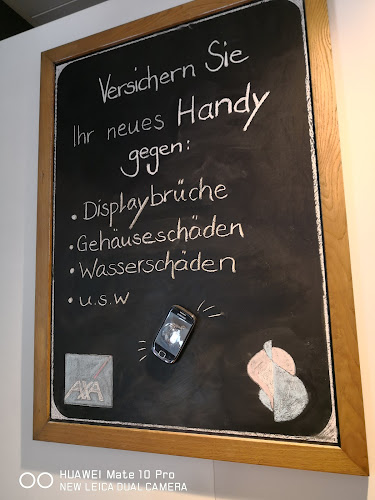 Versichern Sie
Ihr neues Handy
gegen:
• Displaybrüche
• Gehäuseschäden
• Wasserschäden
• u.s.w
AXA
HUAWEI Mate 10 Pro
NEW LEICA DUAL CAMERA